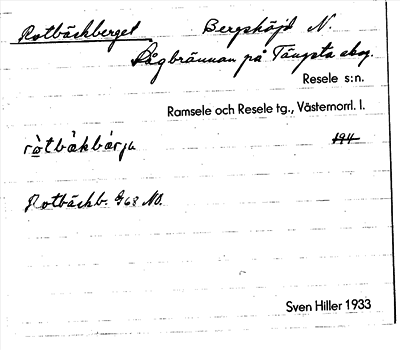 Rotbäckberget Bergshöjd N.
Rågbrännan på Tängsta skog.
Resele s:n.
Ramsele och Resele tg., Västernorrl. l.
ròtbäkbärja 194
Rotbäckb. G68 NO.
Sven Hiller 1933